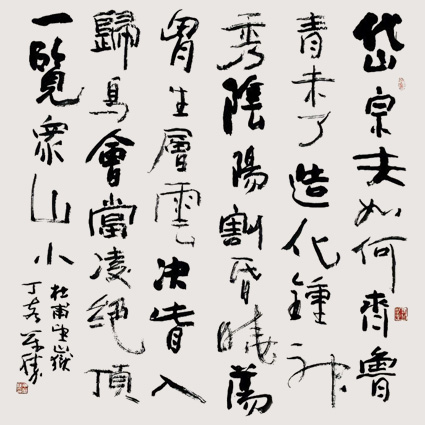 岱宗夫如何齊魯
青未了造化鍾神
秀陰陽割昏曉蕩
胷生層雲決眥入
歸鳥會當凌絕頂
一覽眾山小
杜甫望嶽
丁亥